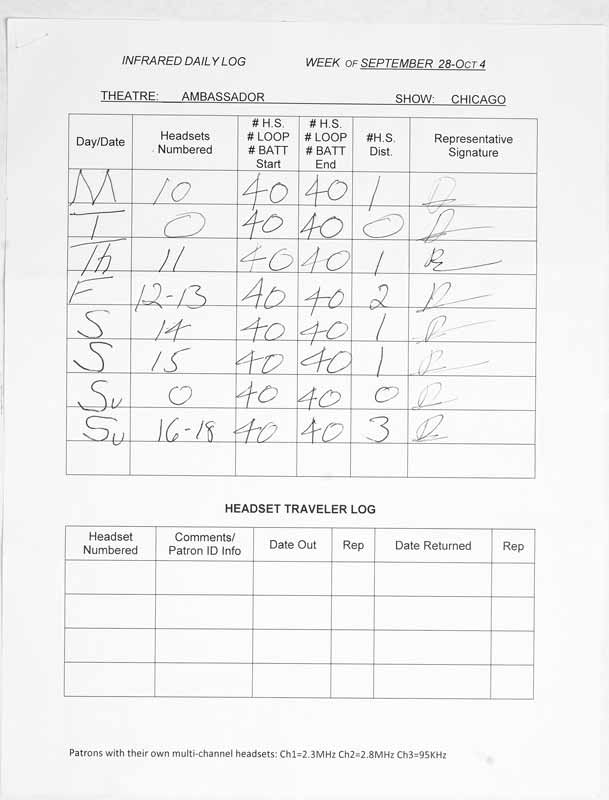 INFRARED DAILY LOG WEEK OF SEPTEMBER 28-OCT 4
THEATRE: AMBASSADOR SHOW: CHICAGO
Day/Date Headsets Numbered # H.S. # LOOP # BATT Start # H.S. # LOOP # BATT End #H.S. Dist. Representative Signature
M 10 40 40 1
T 0 40 40 0
Th 11 40 40 1
F 12-13 40 40 2
S 14 40 40 1
S 15 40 40 1
Su 0 40 40 0
Su 16-18 40 40 3
HEADSET TRAVELER LOG
Headset Numbered Comments/ Patron ID Info Date Out Rep Date Returned Rep
Patrons with their own multi-channel headsets: Ch1=2.3MHz Ch2=2.8MHz Ch3=95KHz